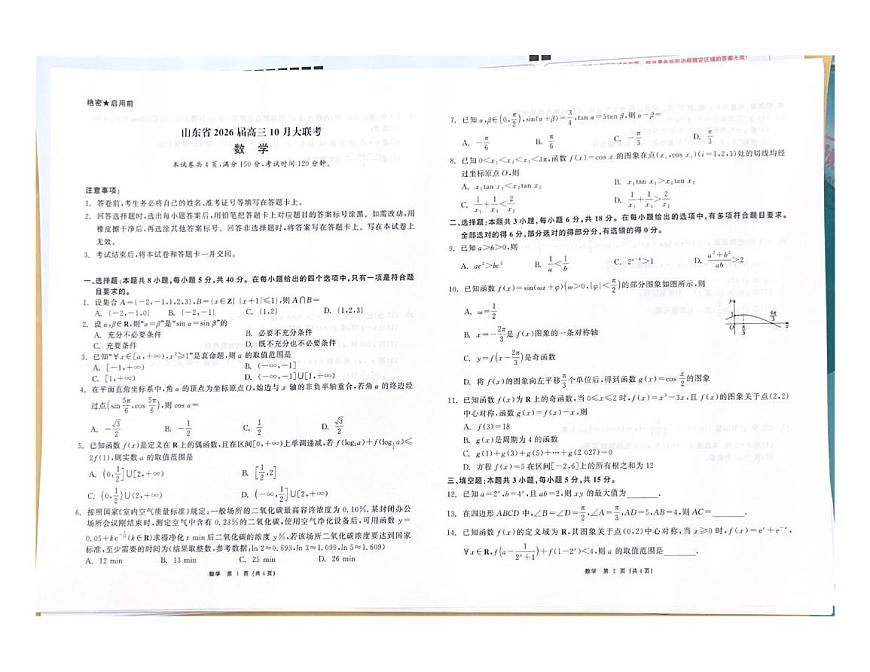 绝密★启用前
山东省2026届高三10月大联考
数 学
本试卷共4页,满分150分,考试时间120分钟。
注意事项:
1. 答卷前,考生务必将自己的姓名、准考证号等填写在答题卡上。
2. 回答选择题时,选出每小题答案后,用铅笔把答题卡上对应题目的答案标号涂黑。如需改动,用
橡皮擦干净后,再选涂其他答案标号。回答非选择题时,将答案写在答题卡上。写在本试卷上
无效。
3. 考试结束后,将本试卷和答题卡一并交回。
一、选择题:本题共8小题,每小题5分,共40分。在每小题给出的四个选项中,只有一项是符合题
目要求的。
1. 设集合A={-2,-1,1,2,3},B={x∈Z| |x+1|≤1},则A∩B=
A. {-2,-1,0} B. {-2,-1} C. {1,2} D. {1,2,3}
2. 设α,β∈R,则“α=β”是“sin α=sin β”的
A. 充分不必要条件 B. 必要不充分条件
C. 充要条件 D. 既不充分也不必要条件
3. 已知“∀x∈[a,+∞),x²≥1”是真命题,则a的取值范围是
A. [-1,+∞) B. (-∞,-1]
C. [1,+∞) D. (-∞,-1]∪[1,+∞)
4. 在平面直角坐标系中,角α的顶点为坐标原点O,始边与x轴的非负半轴重合,若角α的终边经
过点(sin 5π/6,cos 5π/6),则cos α=
A. -√3/2 B. -1/2 C. 1/2 D. √3/2
5. 已知函数f(x)是定义在R上的偶函数,且在区间[0,+∞)上单调递减,若f(log₂a)+f(log_{1/2}a)≤
2f(1),则实数a的取值范围是
A. (0,1/2]∪[2,+∞) B. [1/2,2]
C. (0,1/2)∪(2,+∞) D. (-∞,1/2]∪[2,+∞)
6. 按照国家《室内空气质量标准》规定:一般场所的二氧化碳最高容许浓度为0.10%。某封闭办公
场所会议刚结束时,测定空气中含有0.25%的二氧化碳,使用空气净化设备后,可用函数y=
(k∈R)求得净化t min后二氧化碳的浓度y%,若该场所二氧化碳浓度要达到国家
标准,至少需要的时间为(结果取整数,参考数据:ln 2≈0.693,ln 3≈1.099,ln 5≈1.609)
A. 12 min B. 13 min C. 25 min D. 26 min
数学 第1页(共4页)
7. 已知α,β∈(0,π/2),sin(α+β)=3/4,tan α=5tan β,则α-β=
A. -π/6 B. π/6 C. -π/3 D. π/3
8. 已知0<x₁<x₂<x₃<3π,函数f(x)=cos x的图象在点(xᵢ,cos xᵢ)(i=1,2,3)处的切线均经
过坐标原点O,则
A. x₁tan x₁<x₂tan x₂ B. x₁tan x₁>x₂tan x₂
C. 1/x₁+1/x₃<2/x₂ D. 1/x₁+1/x₃>2/x₂
二、选择题:本题共3小题,每小题6分,共18分。在每小题给出的选项中,有多项符合题目要求。
全部选对的得6分,部分选对的得部分分,有选错的得0分。
9. 已知a>b>0,则
A. ac²>bc² B. 1/a<1/b C. 2ᵃ⁻ᵇ>1 D. (a²+b²)/ab>2
10. 已知函数f(x)=sin(ωx+φ)(ω>0,|φ|<π/2)的部分图象如图所示,则
A. ω=1/2
B. x=-2π/3是f(x)图象的一条对称轴
C. y=f(x-2π/3)是奇函数
D. 将f(x)的图象向左平移π/3个单位后,得到函数g(x)=cos x/2的图象
y
1
O π/3 4π/3 x
11. 已知函数f(x)为R上的奇函数,当0≤x≤2时,f(x)=x³-3x,且f(x)的图象关于点(2,2)
中心对称,函数g(x)=f(x)-x,则
A. f(3)=18
B. g(x)是周期为4的函数
C. g(1)+g(3)+g(5)+⋯+g(2 027)=0
D. 方程f(x)=5在区间[-2,6]上的所有根之和为12
三、填空题:本题共3小题,每小题5分,共15分。
12. 已知a=2ˣ,b=4ʸ,且ab=2,则xy的最大值为______.
13. 在四边形ABCD中,∠B=∠D=π/2,∠A=π/3,AD=5,AB=4,则AC=______.
14. 已知函数f(x)的定义域为R,其图象关于点(0,2)中心对称,当x≥0时,f(x)=eˣ+e⁻ˣ,
∀x∈R,f(a-1/(2ˣ+1))+f(1-2ˣ)<4,则a的取值范围是______.
数学 第2页(共4页)